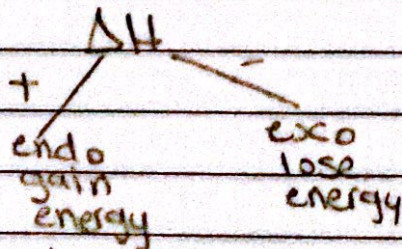 ΔH
+ -
endo
gain
energy
exo
lose
energy